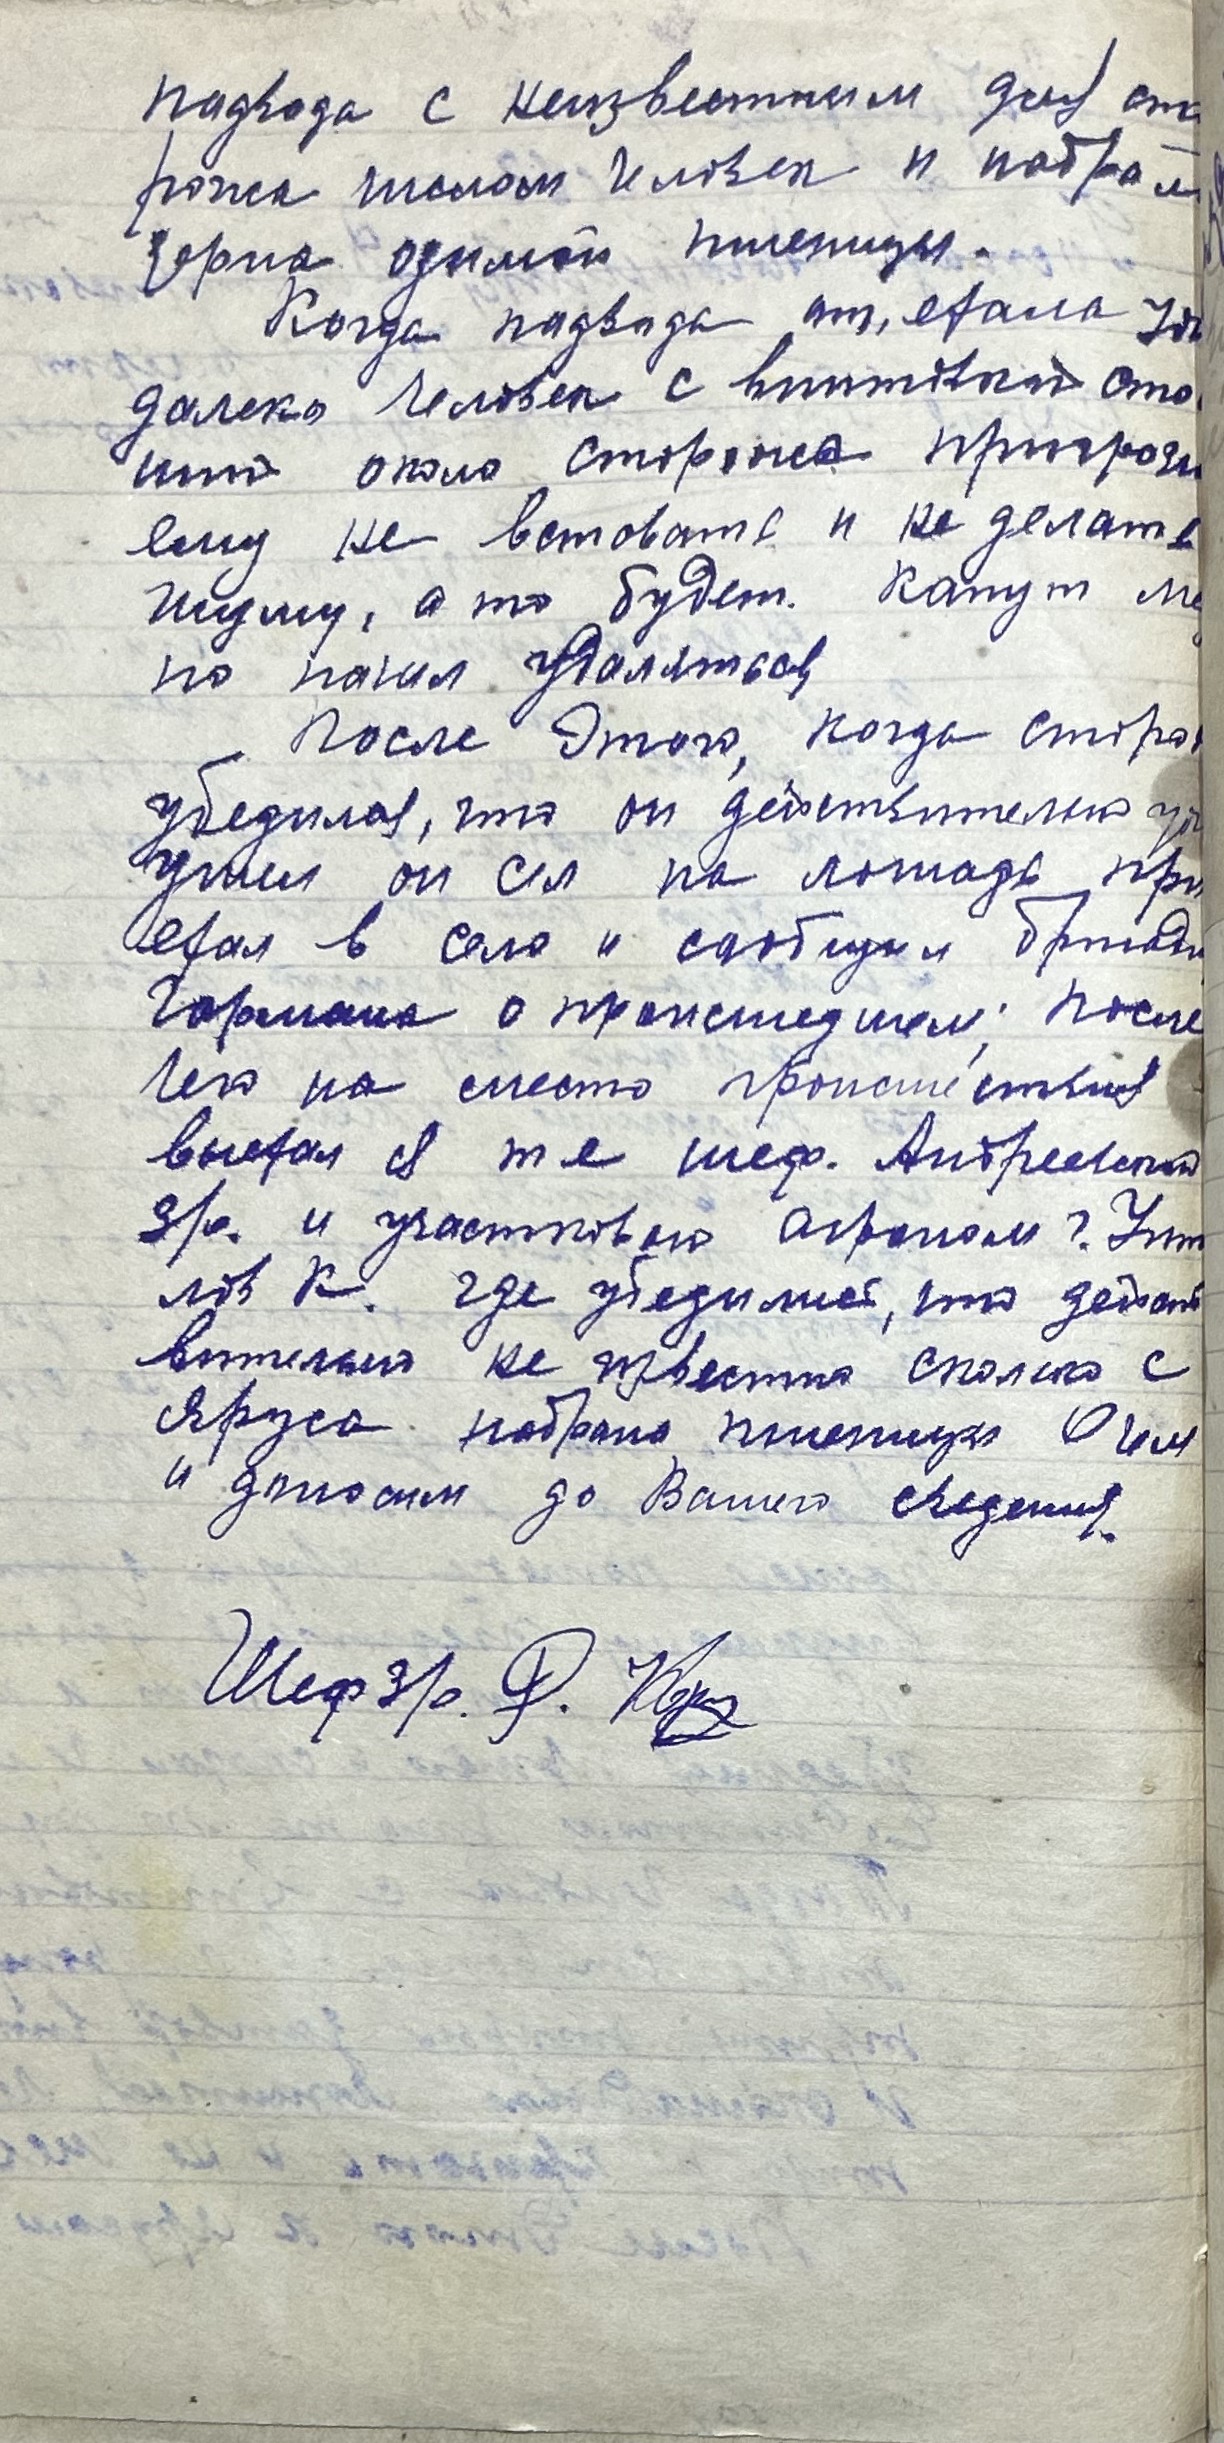 подвода с неизвестним для сто
рожа числом человек и набрал
зерна озимой пшеницы.
Когда подвода от,ехала
далеко человек с винтовкой сто
ший около сторожа пригрози
ему не встовать и не делать
шуму, а то будет. Капут
но начал удаляться
После этого, когда сторо
убедился, что он действительно
ушел он сел на лошадь при
ехал в село и сообщил бригади
Гормана о происшедшем, после
чего на место происшествия
выехал я т.е шеф. Андреевской
з/р. и участкового агроном
лов К. где убедились, что дейст
вительно не известно сколько с
Яруса набрано пшеницы О чем
и доносим до Вашего сведения.
Шеф з/р. Ф.